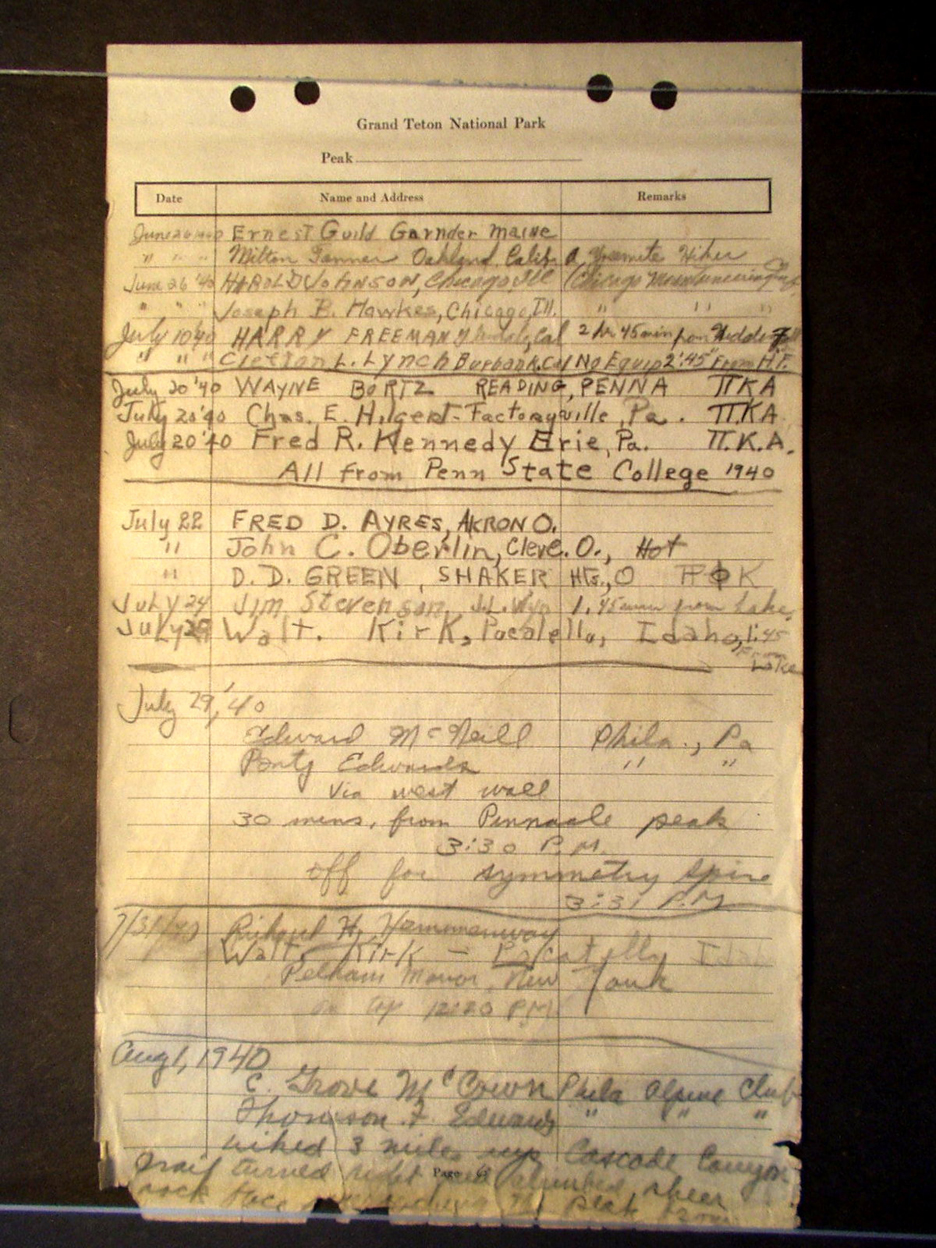 Grand Teton National Park
Peak
Date Name and Address Remarks
June 26 1940 Ernest Guild Garnder Maine
" " " Milton Tanner Oakland Calif. A Yosemite Hiker
June 26 '40 HAROLD JOHNSON, Chicago Ill (Chicago Mountaineering
" " " Joseph B. Hawkes, Chicago, Ill. " "
July 10 '40 HARRY FREEMAN Cal 2 hr 45 min from
" " " Clifton L. Lynch Burbank, Cal No Equip 2'45" From H.F.
July 20 '40 WAYNE BORTZ READING, PENNA ΠKA
July 20 '40 Chas. E. Hilgert - Factoryville, Pa. ΠKA
July 20 '40 Fred R. Kennedy Erie, Pa. Π.K.A.
All from Penn State College 1940
July 22 FRED D. AYRES, AKRON O.
" John C. Oberlin, Cleve. O., Hot
" D. D. GREEN, SHAKER HTS., O
July 24 Jim Stevenson, J.L. Wyo 1.45 from Lake
July 25 Walt. Kirk, Pocatello, Idaho, 1:45
From Lake
July 29, '40
Edward McNeill Phila., Pa
Edwards " "
Via west wall
30 mins, from Pinnacle peak
3:30 P.M.
off for symmetry spire
3:31 P.M.
7/31/40 Richard H. Hemmenway
Walt. Kirk - Pocatello Idaho
Pelham Manor, New York
on top 12:20 P.M.
Aug 1, 1940
C. Grove McCown Phila Alpine Club
Thomson F Edwards " " "
hiked 3 miles up Cascade Canyon
trail turned right and climbed sheer
rock face the peak from
Page